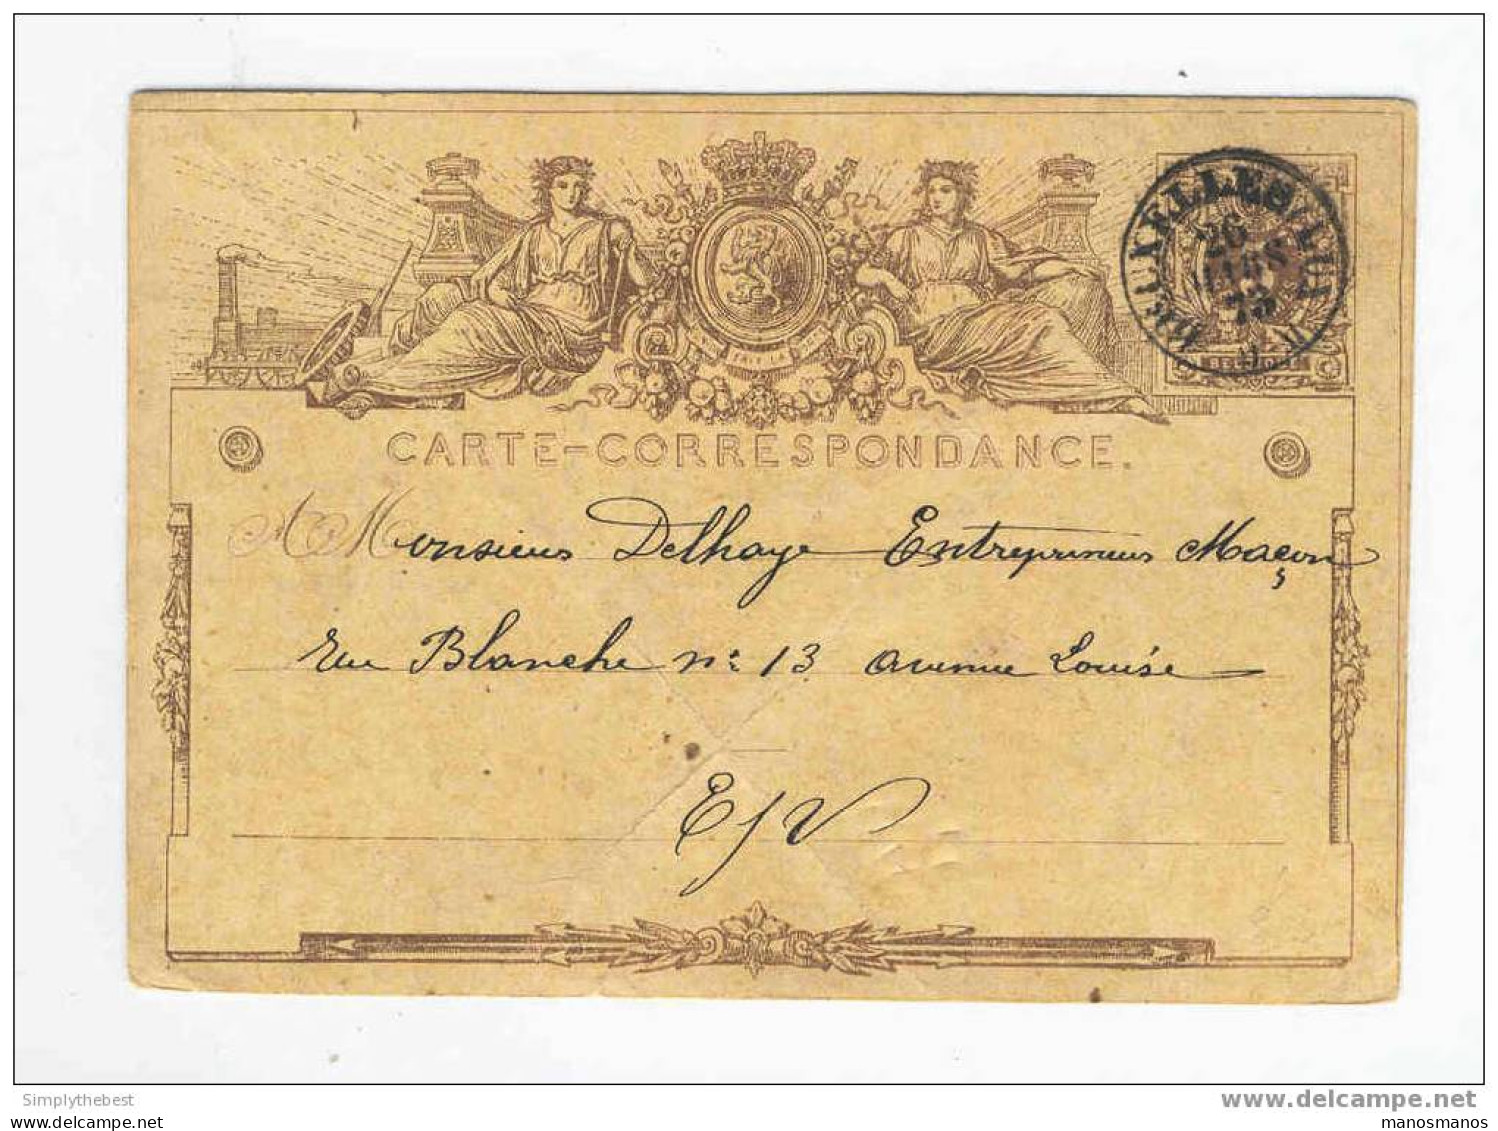 BRUXELLES (LUX
26
MARS
73
FAIT LA
CARTE-CORRESPONDANCE.
A Monsieur Delhaye Entrepreneur Maçon
rue Blanche n° 13 avenue Louise
E/V
Simplythebest
www.delcampe.net
manosmanos